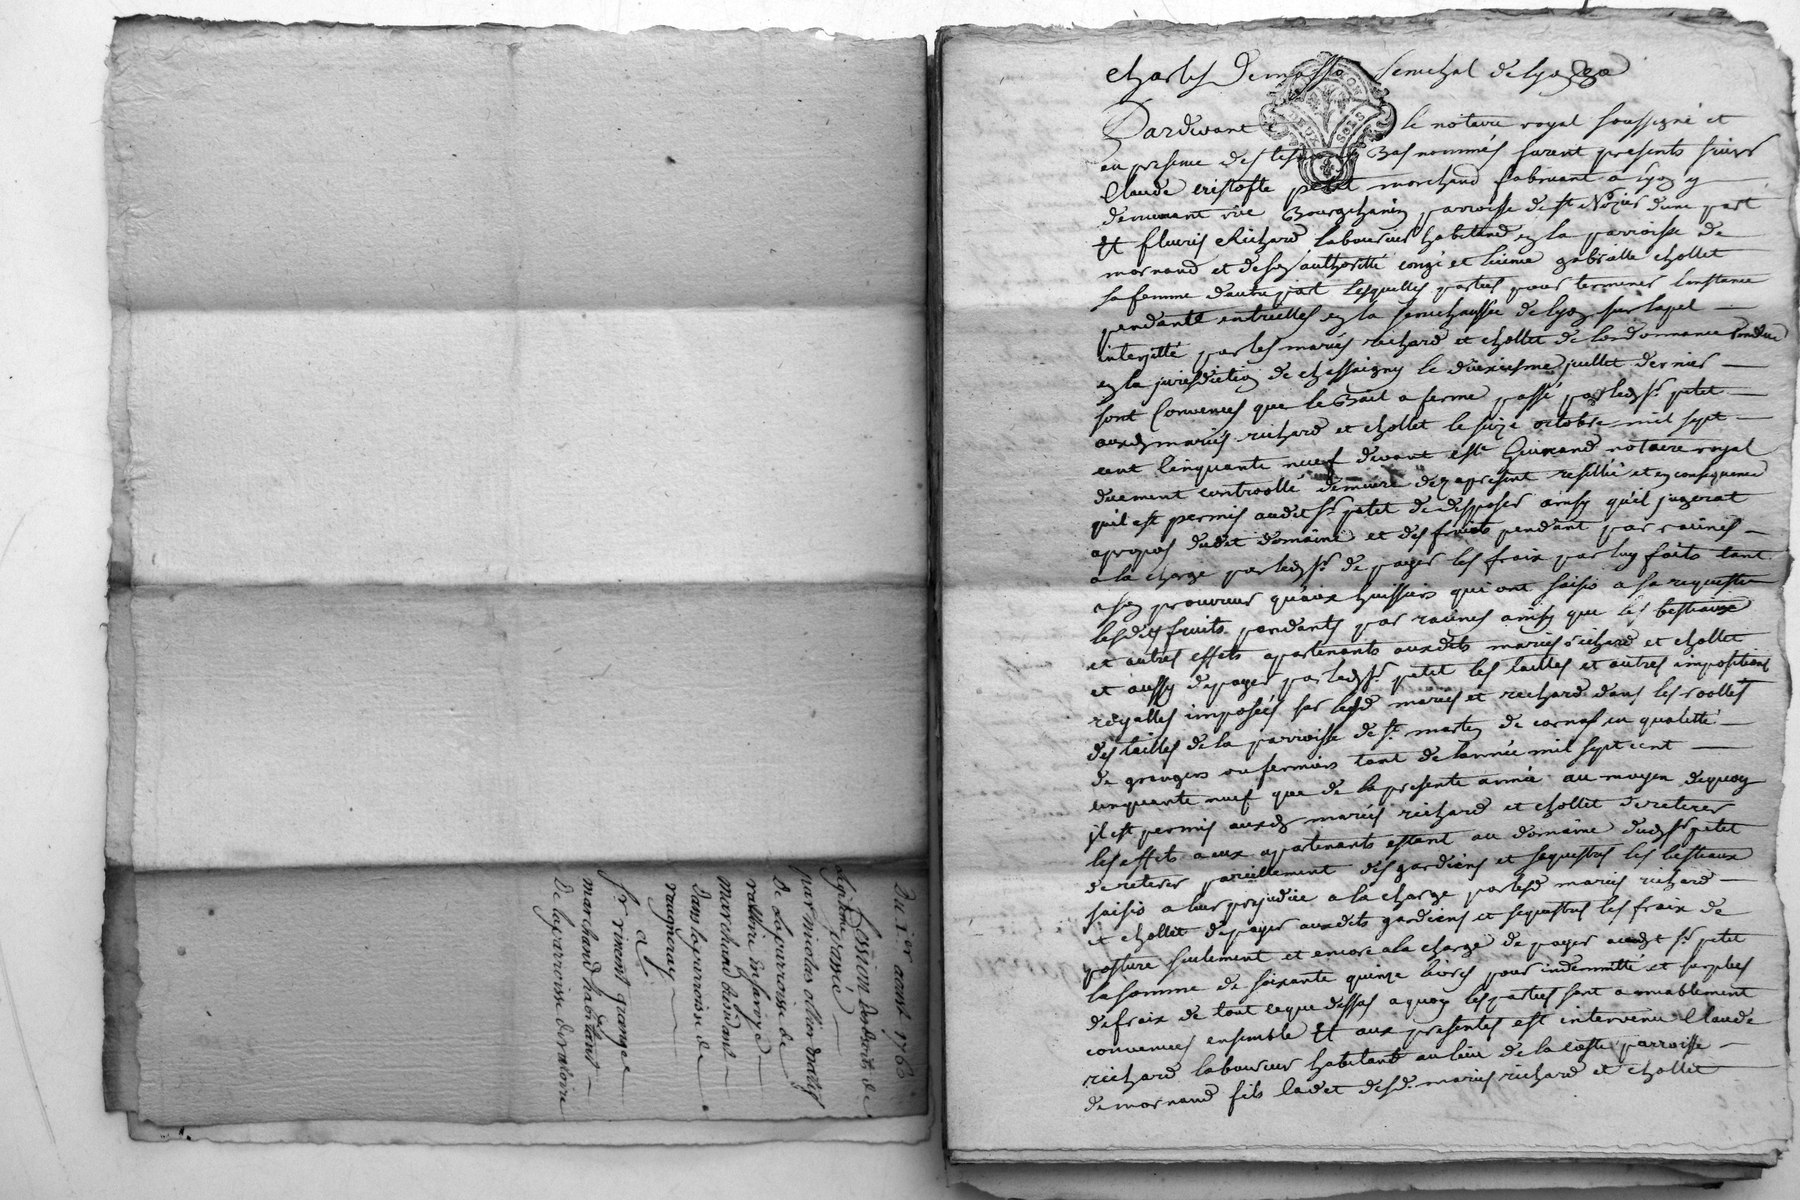 Du 1er aoust 1760
Cession de droits de
légitime
par nicolas ollier
de la parroisse de
marchand
dans la parroisse de
vaugneray
a
Sr. vincent grange
marchand habitant
de la parroisse de
charles De senechal de lyon
GEN DE LYON
DEUX SOLS
Pardevant le notaire royal soussigné et
en presence des tesm bas nommés furent presents sieur
Claude cristofle petit marchand fabricant a lyon y
demeurant rue Bourgchanin parroisse de st Nizier dune part
Et fleuris Richard laboureur habitand en la parroisse de
mornand et de son authoritté congé et licence gabrielle chollet
sa femme dautre part lesquelles parties pour terminer linstance
pendante entrelles en la senechaussée de lyon sur lapel
interjetté par les mariés richard et chollet de lordonnance rendue
en la jurisdiction de chassaigny le dixiesme juillet dernier
sont convenues que le Bail a ferme passé par ledt sr petit
auxd mariés richard et chollet le seize octobre mil sept
cent cinquante neuf devant notaire royal
duement controollé demeure des apresent resillié et en consequence
quil est permis audit sr petit de disposer ainsy quil jugerat
apropos dudit domaine et des fruits pendant par racines
a la charge par ledt sr de payer les fraix par luy faits tant
a son procureur quaux huissiers qui ont saisis a sa requeste
lesdits fruits pendants par racines ainsy que les bestiaux
et autres effets apartenants auxdits mariés richard et chollet
et aussy de payer par ledt sr petit les tailles et autres impositions
royalles imposées sur lesd mariés et richard dans les roolles
des tailles de la parroisse de st martin de cornas en qualitté
de grangers ou fermiers tant de lannée mil sept cent
cinquante neuf que de la presente année au moyen dequoy
il est permis auxd mariés richard et chollet de retirer
les effets a eux apartenants estant au domaine dudt sr petit
de retirer pareillement des gardiens et sequestres les bestiaux
saisis a leur prejudice a la charge par lesd mariés richard
et chollet de payer auxdits gardiens et sequestres les fraix de
pasture seulement et encore a la charge de payer audt sr petit
la somme de soixante quinze livres pour indemnitté et surplus
de fraix de tout ceque dessus a quoy les parties sont amiablement
convenues ensemble Et aux presentes est intervenu Claude
richard laboureur habitant au lieu de la coste parroisse
de mornand fils cadet desd mariés richard et chollet